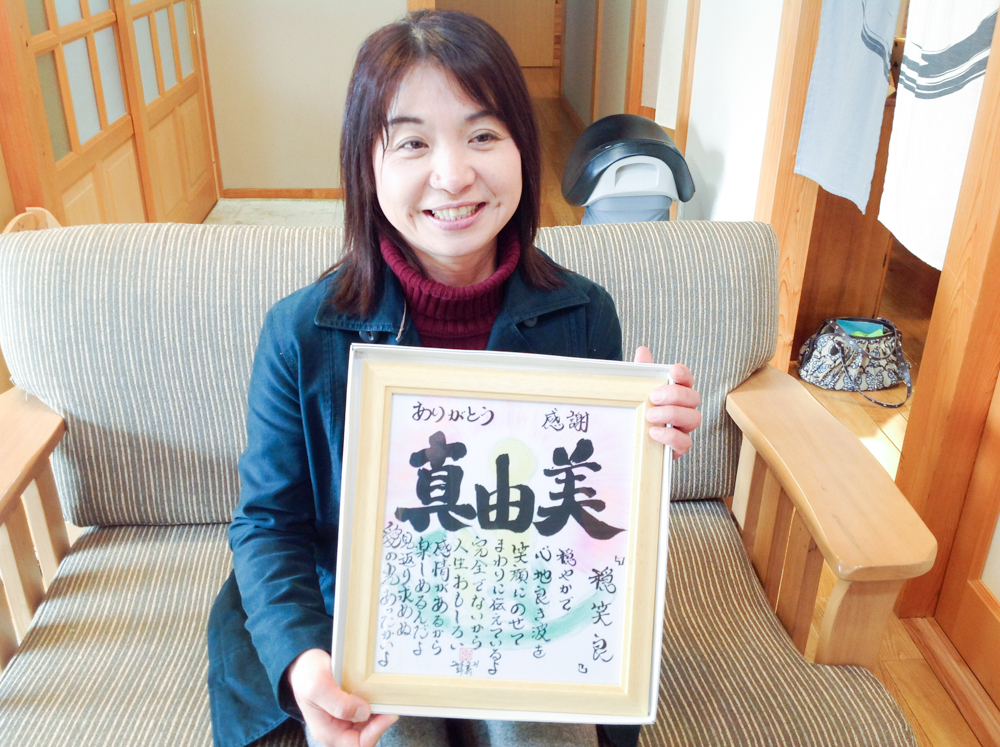 ありがとう　感謝
真由美
「穏笑良」
穏やかで
心地良き波を
笑顔にのせて
まわりに伝えているよ
完全でないから
人生おもしろい
感情があるから
楽しめるんだよ
見返り求めぬ
の光あったかいよ